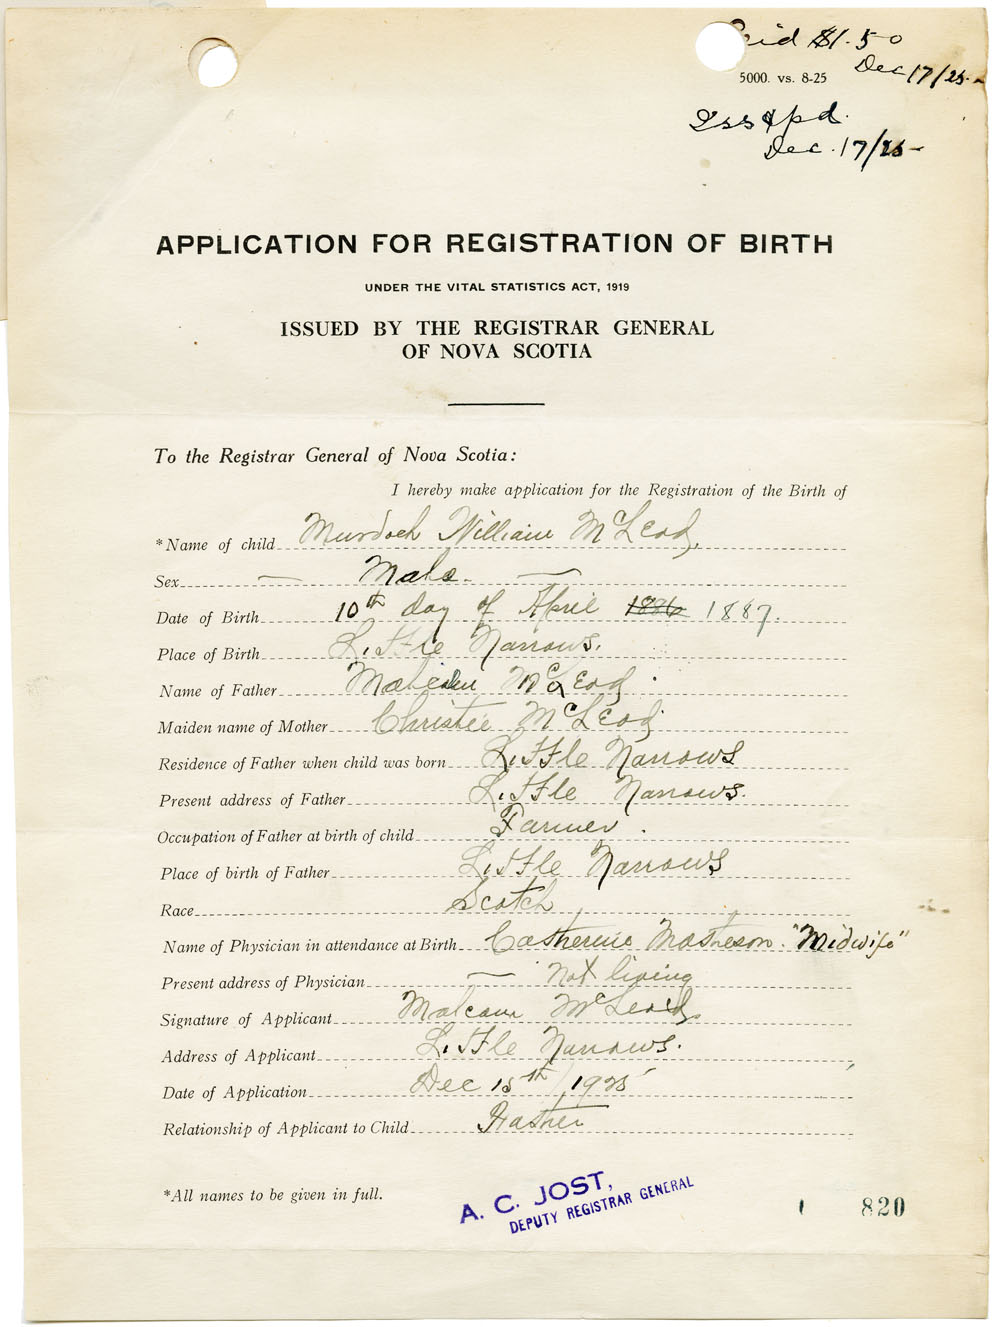 Paid $1.50
Dec 17/25
5000. vs. 8-25
Iss & pd.
Dec. 17/25
APPLICATION FOR REGISTRATION OF BIRTH
UNDER THE VITAL STATISTICS ACT, 1919
ISSUED BY THE REGISTRAR GENERAL
OF NOVA SCOTIA
To the Registrar General of Nova Scotia:
I hereby make application for the Registration of the Birth of
*Name of child Murdoch William McLeod.
Sex — Male. —
Date of Birth 10th day of April 1886 1887.
Place of Birth Little Narrows.
Name of Father Malcolm McLeod.
Maiden name of Mother Christie McLeod.
Residence of Father when child was born Little Narrows
Present address of Father Little Narrows.
Occupation of Father at birth of child Farmer.
Place of birth of Father Little Narrows
Race Scotch
Name of Physician in attendance at Birth Catherine Matheson. "Midwife"
Present address of Physician — Not living
Signature of Applicant Malcom McLeod.
Address of Applicant Little Narrows.
Date of Application Dec 15th / 1925
Relationship of Applicant to Child Father
*All names to be given in full.
A. C. JOST,
DEPUTY REGISTRAR GENERAL
820